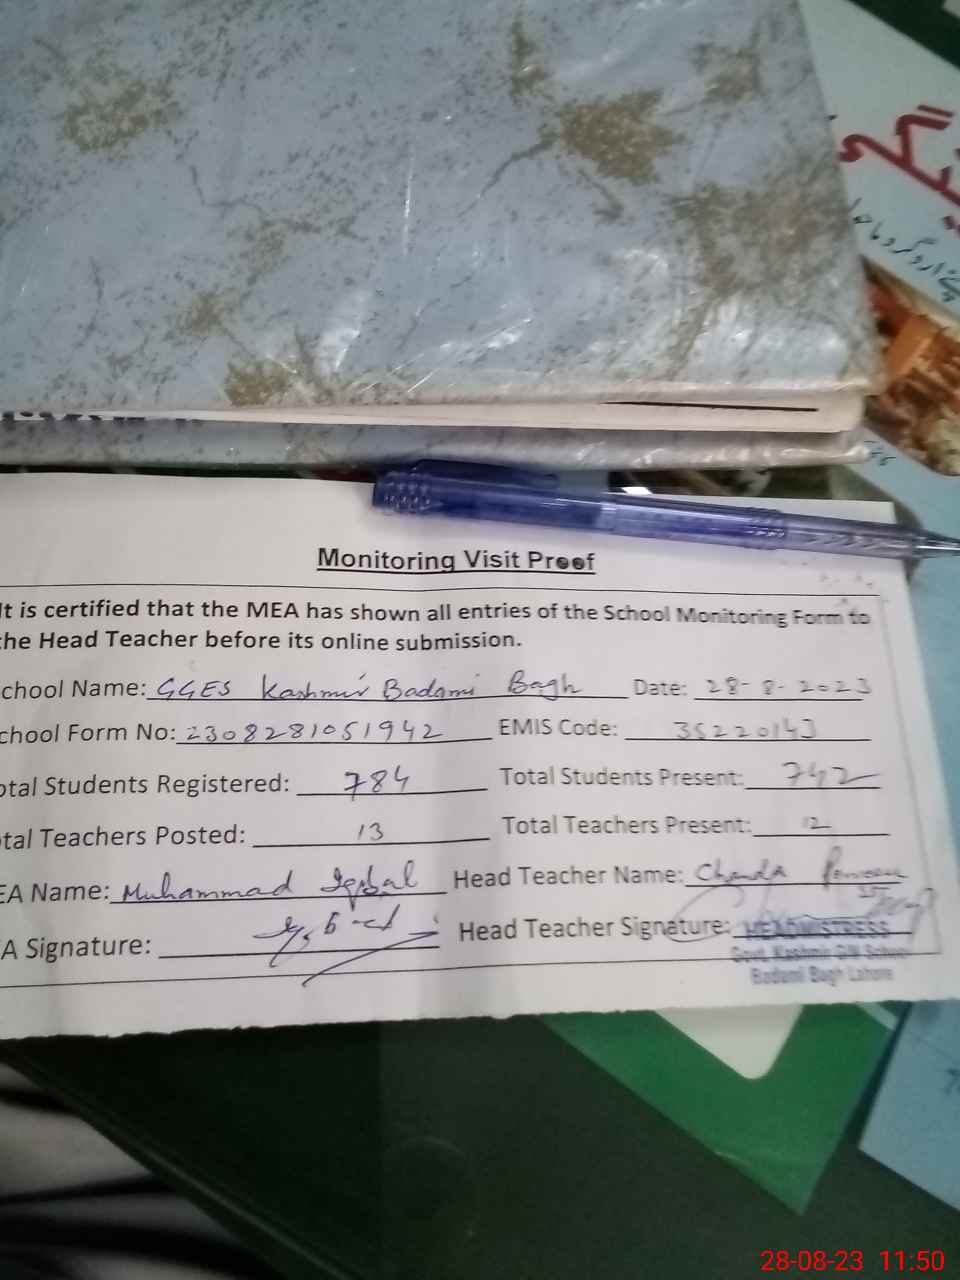 Monitoring Visit Proof
It is certified that the MEA has shown all entries of the School Monitoring Form to
the Head Teacher before its online submission.
chool Name: GGES Kashmir Badami Bagh Date: 28-8-2023
chool Form No: 2308281051942 EMIS Code: 35220143
otal Students Registered: 784 Total Students Present: 742
tal Teachers Posted: 13 Total Teachers Present: 12
EA Name: Muhammad Iqbal Head Teacher Name: Chanda Perveen
A Signature: Head Teacher Signature: HEADMISTRESS
Govt. Kashmir Girl School
Badami Bagh Lahore
28-08-23 11:50